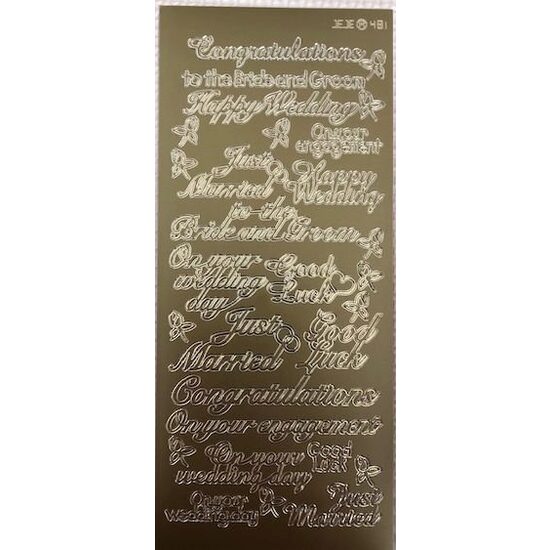 JEJE 481
Congratulations
to the Bride and Groom
Happy Wedding
On your
engagement
Just
Married
Happy
Wedding
to the
Bride and Groom
On your
wedding
day
Good
Luck
Just
Married
Good
Luck
Congratulations
On your engagement
On your
wedding day
Good
Luck
On your
wedding day
Just
Married